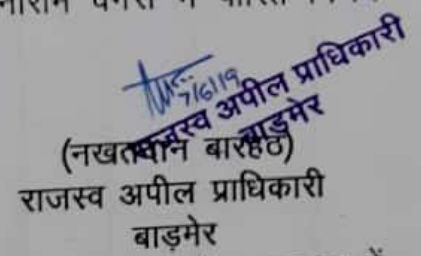 7/6/19
राजस्व अपील प्राधिकारी
बाड़मेर
(नखतदान बारहठ)
राजस्व अपील प्राधिकारी
बाड़मेर